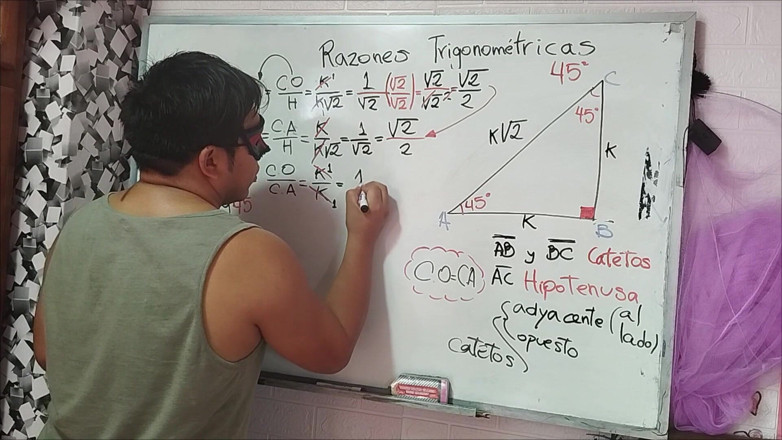 Razones Trigonométricas
45°
= CO/H = K¹/K√2 = 1/√2 (√2/√2) = √2/√2² = √2/2
= CA/H = K/K√2 = 1/√2 = √2/2
CO/CA = K¹/K₁ = 1
45
C
45°
K√2
K
A
45°
K
B
AB y BC Catetos
CO=CA
AC Hipotenusa
catetos
adyacente (al lado)
opuesto